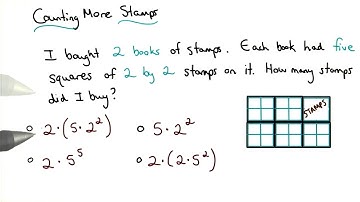 Counting More Stamps
I bought 2 books of stamps. Each book had five
squares of 2 by 2 stamps on it. How many stamps
did I buy?
STAMPS
○ 2·(5·2²) ○ 5·2²
○ 2·5⁵ ○ 2·(2·5²)